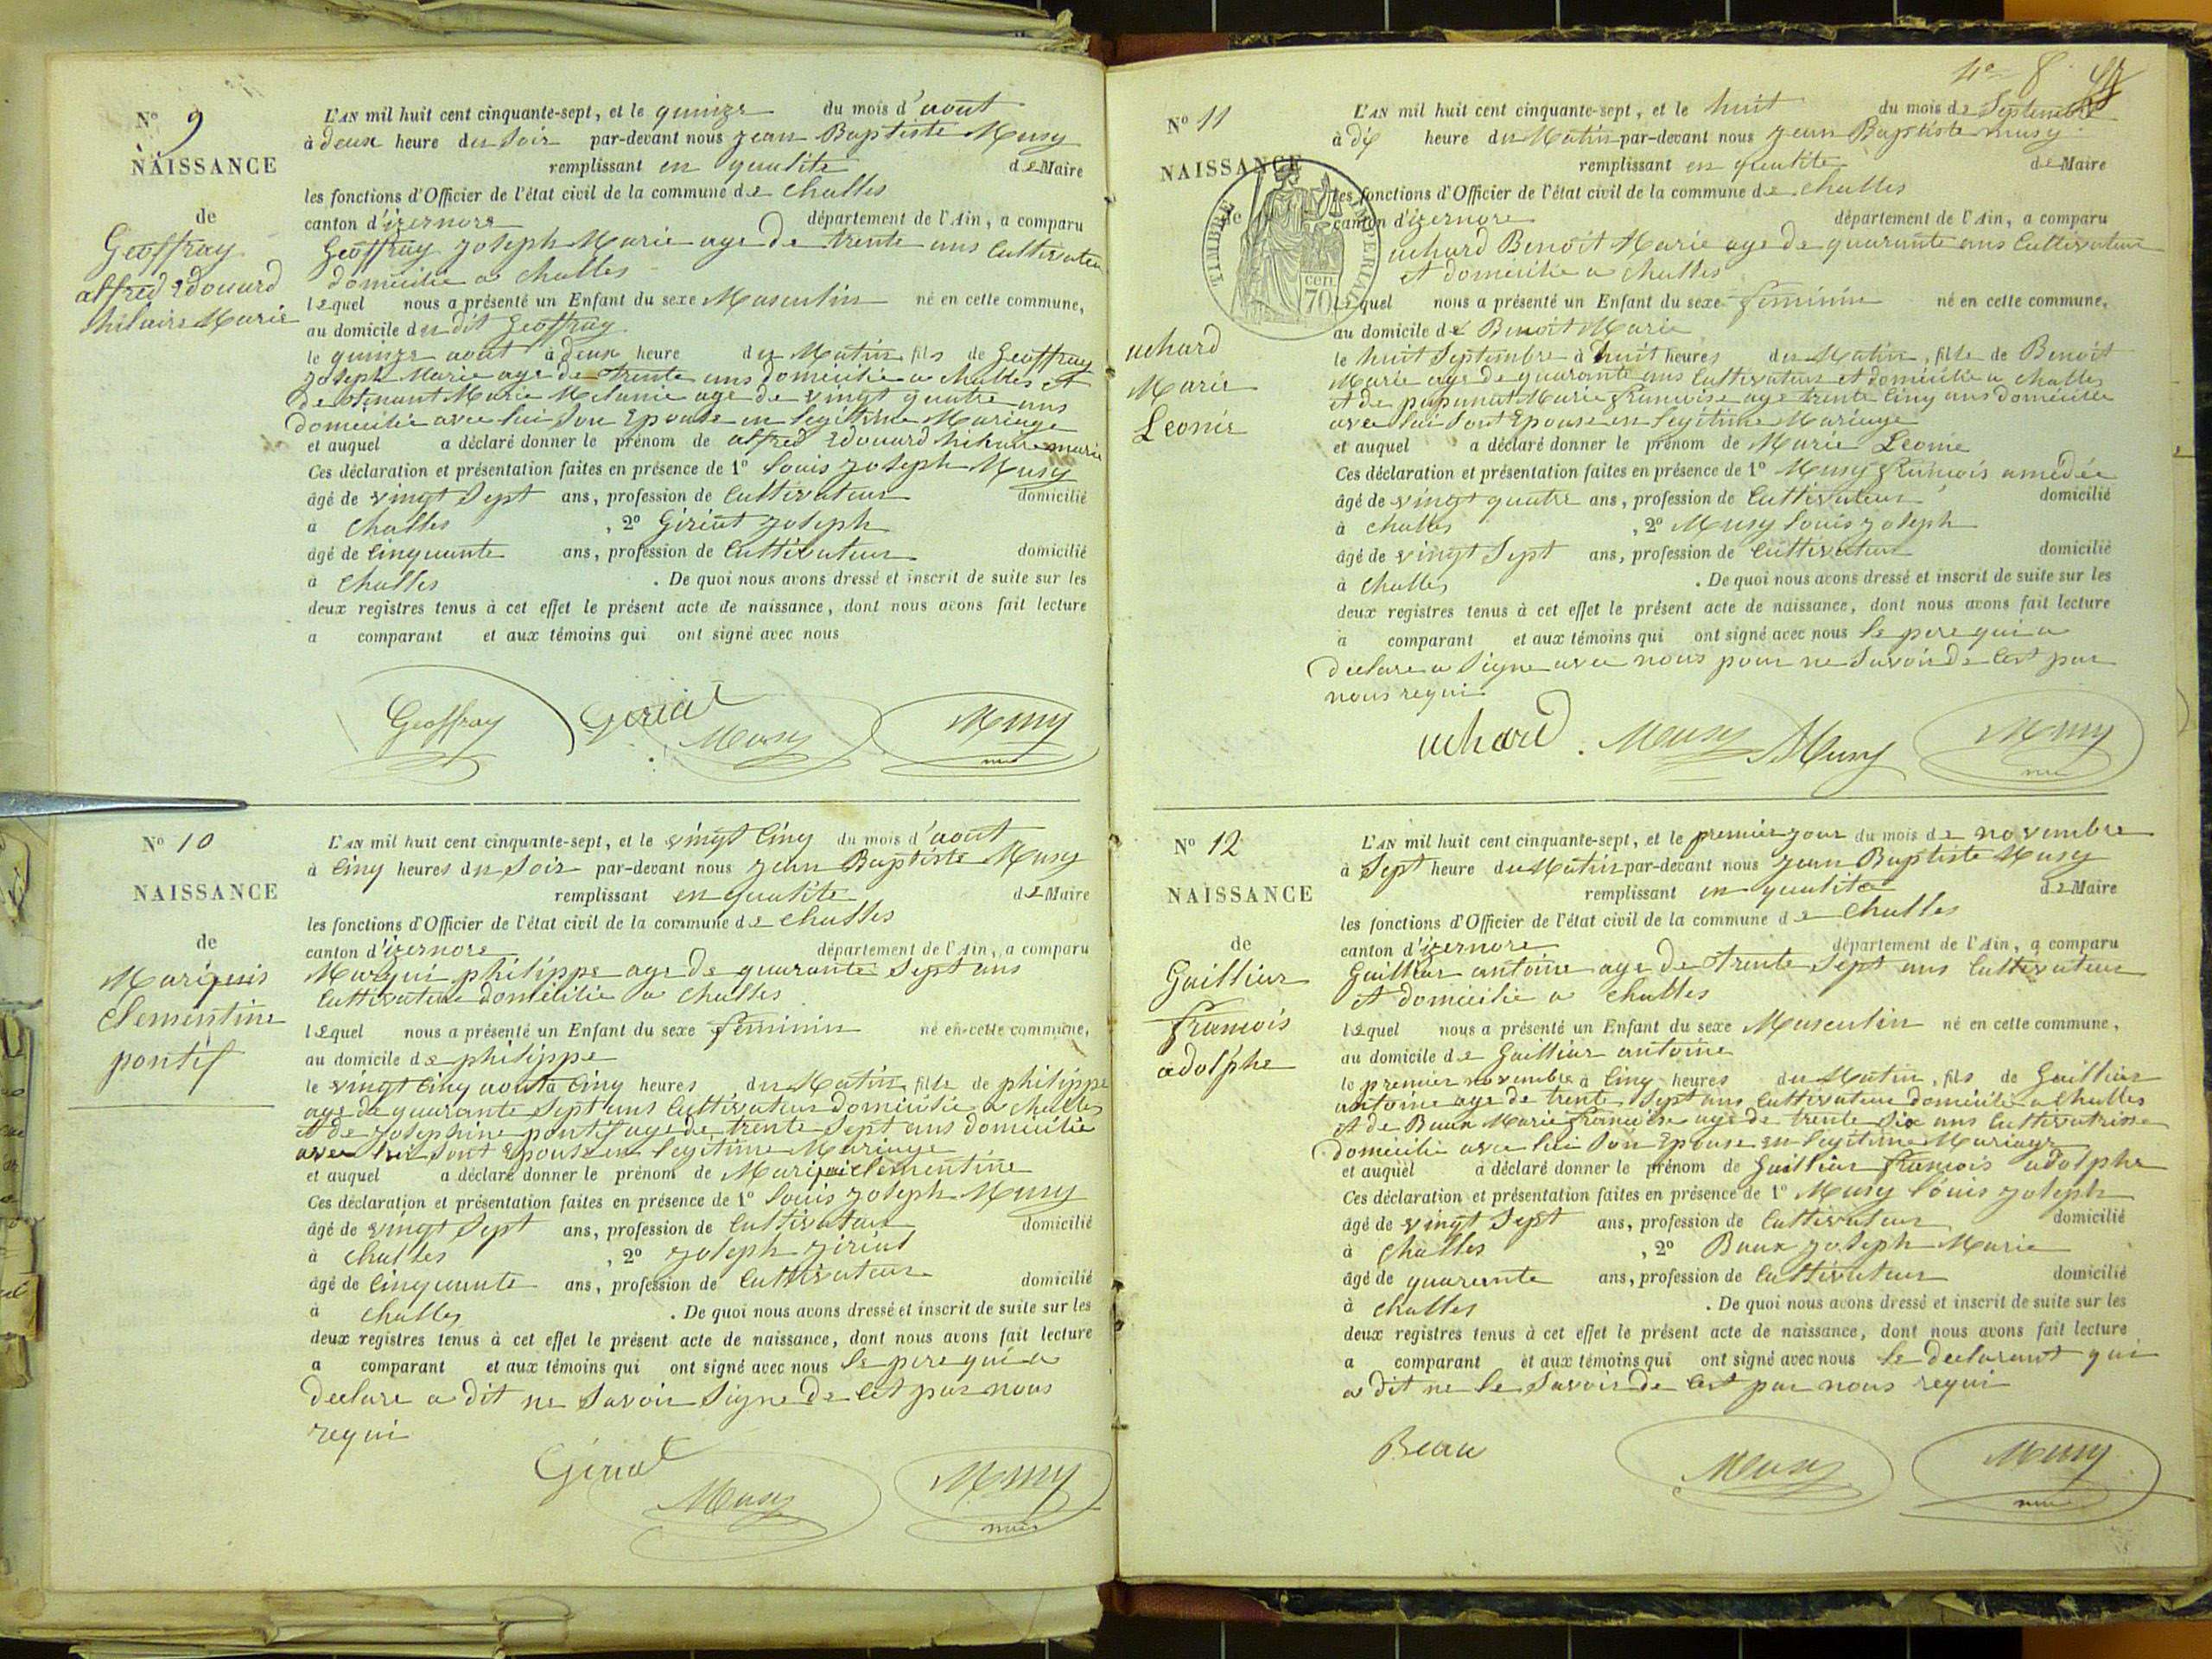 N° 9
NAISSANCE
de
Geoffray
alfred Edouard
hilaire Marie
L'AN mil huit cent cinquante-sept, et le quinze du mois d'aout
à deux heure du Soir par-devant nous jean Baptiste Musy
remplissant en qualite de Maire
les fonctions d'Officier de l'état civil de la commune de Challes
canton d'izernore département de l'Ain, a comparu
Geoffray joseph Marie age de trente ans Cultivateur
domicilie a challes
lequel nous a présenté un Enfant du sexe Masculin né en cette commune,
au domicile du dit Geoffray
le quinze aout à deux heure du Matin, fils de Geoffray
joseph Marie age de trente ans domicilie a challes et
de Marie Melanie age de vingt quatre ans
domicilie avec lui Son Epouse en legitime Mariage
et auquel a déclaré donner le prénom de alfred Edouard hilaire marie
Ces déclaration et présentation faites en présence de 1° Louis joseph Musy
âgé de vingt Sept ans, profession de Cultivateur domicilié
à Challes , 2° Giriat joseph
âgé de Cinquante ans, profession de Cultivateur domicilié
à Challes . De quoi nous avons dressé et inscrit de suite sur les
deux registres tenus à cet effet le présent acte de naissance, dont nous avons fait lecture
a comparant et aux témoins qui ont signé avec nous
Geoffray Geriat Musy Musy
N° 10
NAISSANCE
de
Mariquis
Clementine
pontif
L'AN mil huit cent cinquante-sept, et le vingt Cinq du mois d'aout
à Cinq heures du Soir par-devant nous jean Baptiste Musy
remplissant en qualite de Maire
les fonctions d'Officier de l'état civil de la commune de Challes
canton d'izernore département de l'Ain, a comparu
Marqui philippe age de quarante Sept ans
Cultivateur domicilie a Challes
lequel nous a présenté un Enfant du sexe feminin né en cette commune,
au domicile de philippe
le vingt Cinq aout à Cinq heures du Matin, fille de philippe
age de quarante Sept ans Cultivateur domicilie a challes
et de josephine pontif age de trente Sept ans domicilie
avec lui Sont Epouse en legitime Mariage
et auquel a déclaré donner le prénom de Mariqui Clementine
Ces déclaration et présentation faites en présence de 1° Louis joseph Musy
âgé de vingt Sept ans, profession de Cultivateur domicilié
à Challes , 2° joseph jiriat
âgé de Cinquante ans, profession de Cultivateur domicilié
à Challes . De quoi nous avons dressé et inscrit de suite sur les
deux registres tenus à cet effet le présent acte de naissance, dont nous avons fait lecture
a comparant et aux témoins qui ont signé avec nous le pere qui a
declare a dit ne Savoir Signe de Cet par nous
requi
Geriat Musy Musy
N° 11
NAISSANCE
de
uchard
Marie
Leonie
TIMBRE IMPERIAL
cen
70
L'AN mil huit cent cinquante-sept, et le huit du mois de Septembre
à dix heure du Matin par-devant nous jean Baptiste musy
remplissant en qualite de Maire
les fonctions d'Officier de l'état civil de la commune de challes
canton d'izernore département de l'Ain, a comparu
uchard Benoit Marie age de quarante ans Cultivateur
et domicilie a challes
lequel nous a présenté un Enfant du sexe feminin né en cette commune,
au domicile de Benoit Marie
le huit Septembre à huit heures du Matin, fille de Benoit
Marie age de quarante ans Cultivateur et domicilie a challes
et de Marie francoise age trente Cinq ans domicilie
avec lui Sont Epouse en legitime Mariage
et auquel a déclaré donner le prénom de Marie Leonie
Ces déclaration et présentation faites en présence de 1° Musy francois amédée
âgé de vingt quatre ans, profession de Cultivateur domicilié
à challes , 2° Musy Louis joseph
âgé de vingt Sept ans, profession de Cultivateur domicilié
à Challes . De quoi nous avons dressé et inscrit de suite sur les
deux registres tenus à cet effet le présent acte de naissance, dont nous avons fait lecture
a comparant et aux témoins qui ont signé avec nous le pere qui a
declare a Signe avec nous pour ne Savoir de Cet par
nous requi
uchard Musy Musy Musy
N° 12
NAISSANCE
de
Gaillier
francois
adolphe
L'AN mil huit cent cinquante-sept, et le premier jour du mois de novembre
à Sept heure du Matin par-devant nous jean Baptiste Musy
remplissant en qualite de Maire
les fonctions d'Officier de l'état civil de la commune de Challes
canton d'izernore département de l'Ain, a comparu
Gaillier antoine age de trente Sept ans Cultivateur
et domicilie a Challes
lequel nous a présenté un Enfant du sexe Masculin né en cette commune,
au domicile de Gaillier antoine
le premier novembre à Cinq heures du Matin, fils de Gaillier
antoine age de trente Sept ans Cultivateur domicilie a Challes
et de Baux Marie francoise age de trente Six ans Cultivatrisse
domicilie avec lui Son Epouse en legitime Mariage
et auquel a déclaré donner le prénom de Gaillier francois adolphe
Ces déclaration et présentation faites en présence de 1° Musy Louis joseph
âgé de vingt Sept ans, profession de Cultivateur domicilié
à Challes , 2° Baux joseph Marie
âgé de quarante ans, profession de Cultivateur domicilié
à Challes . De quoi nous avons dressé et inscrit de suite sur les
deux registres tenus à cet effet le présent acte de naissance, dont nous avons fait lecture
a comparant et aux témoins qui ont signé avec nous le declarant qui
a dit ne le Savoir de Cet par nous requi
Beau Musy Musy